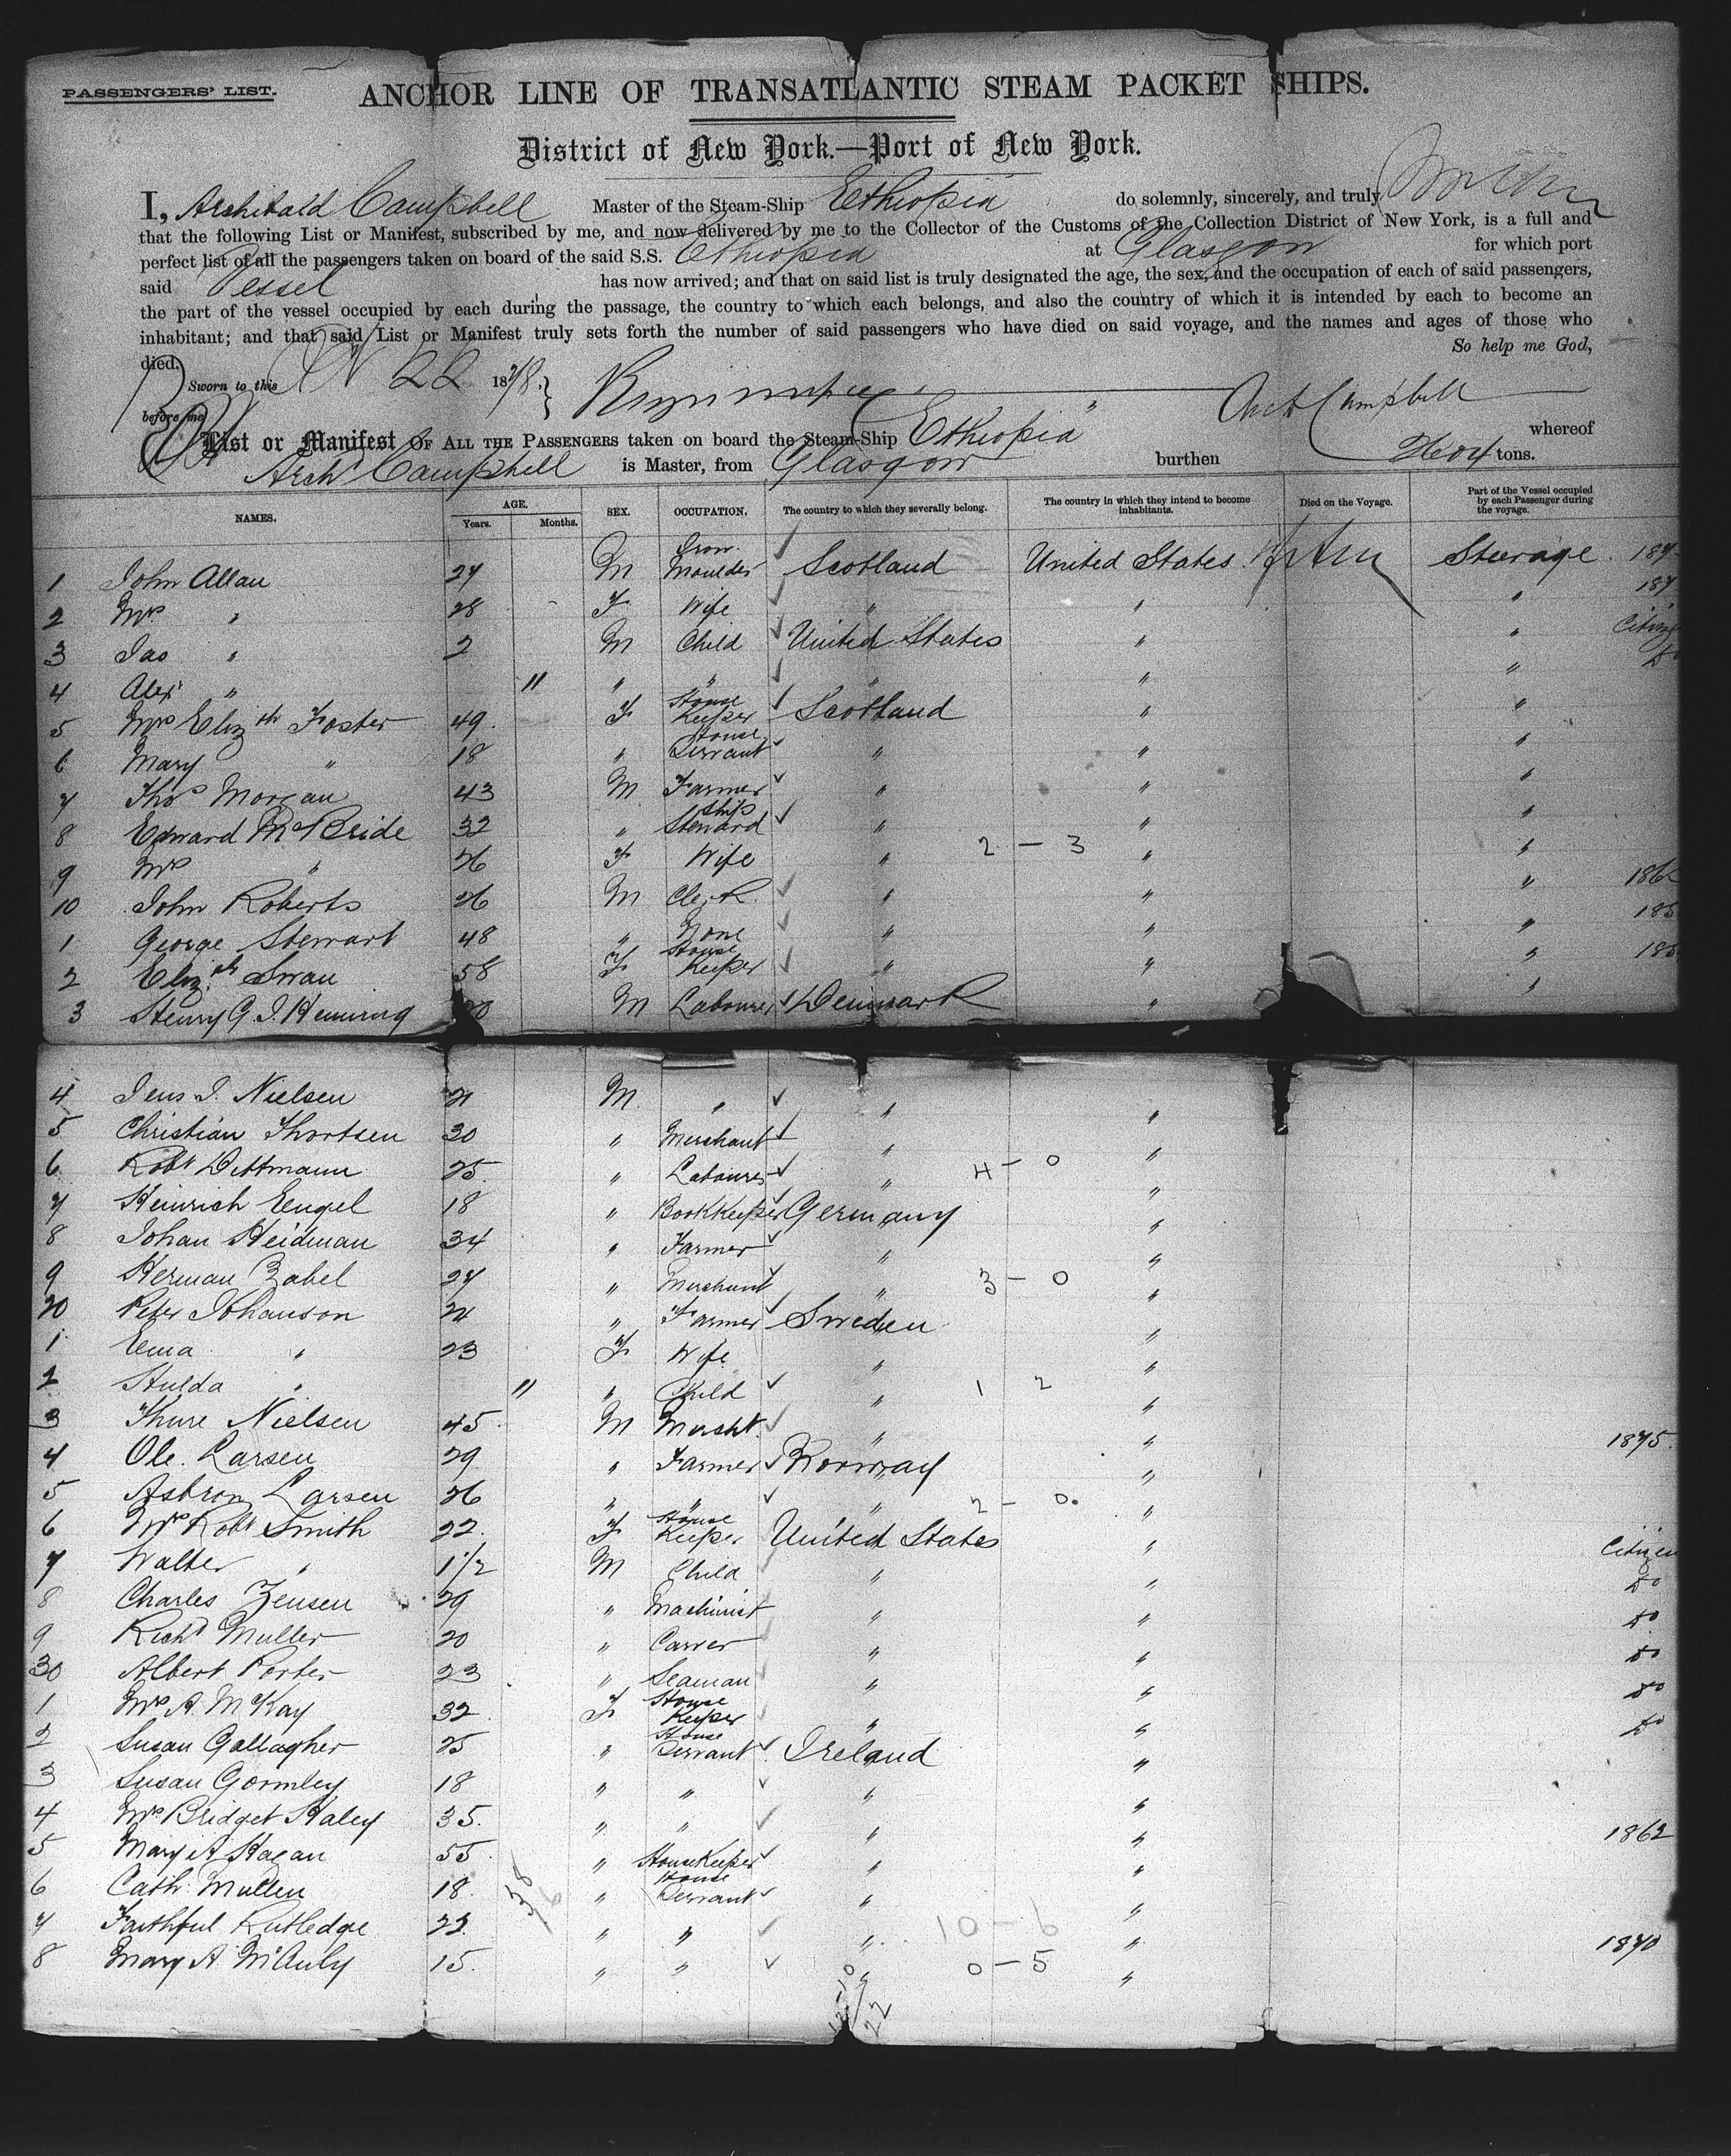 PASSENGERS' LIST.
ANCHOR LINE OF TRANSATLANTIC STEAM PACKET SHIPS.
District of New York.—Port of New York.
I, Archibald Campbell Master of the Steam-Ship Ethiopia do solemnly, sincerely, and truly
that the following List or Manifest, subscribed by me, and now delivered by me to the Collector of the Customs of the Collection District of New York, is a full and
perfect list of all the passengers taken on board of the said S.S. Ethiopia at Glasgow for which port
said Vessel has now arrived; and that on said list is truly designated the age, the sex, and the occupation of each of said passengers,
the part of the vessel occupied by each during the passage, the country to which each belongs, and also the country of which it is intended by each to become an
inhabitant; and that said List or Manifest truly sets forth the number of said passengers who have died on said voyage, and the names and ages of those who
died. So help me God,
Sworn to this 22 1878
before me Arch Campbell
List or Manifest OF ALL THE PASSENGERS taken on board the Steam-Ship Ethiopia whereof
Archd Campbell is Master, from Glasgow burthen tons.
NAMES. AGE. Years. Months. SEX. OCCUPATION. The country to which they severally belong. The country in which they intend to become inhabitants. Died on the Voyage. Part of the Vessel occupied by each Passenger during the voyage.
1 John Allan 27 M Iron Moulder Scotland United States Steerage 187
2 Mrs " 28 F Wife " " " 187
3 Jas " 2 M Child United States " " Citizen
4 Alexr " 11 " " " " " Do
5 Mrs Elizth Foster 49 F House Keeper Scotland " "
6 Mary " 18 " House Servant " " "
7 Thos Morgan 43 M Farmer " " "
8 Edward McBride 32 " Ship Steward " " "
9 Mrs " 26 F Wife " 2 - 3 " "
10 John Roberts 26 M Clerk " " " 1862
1 George Stewart 48 " None " " " 185
2 Elizth Swan 58 F House Keeper " " " 185
3 Henry G. J. Henning 20 M Labourer Denmark " "
4 Jens J. Nielsen 21 M " " "
5 Christian Thortsen 30 " Merchant " "
6 Robt Dittmann 25 " Labourer " 4 - 0 "
7 Heinrich Eengel 18 " Bookkeeper Germany "
8 Johan Heidman 34 " Farmer " "
9 Herman Zabel 27 " Merchant " 3 - 0 "
20 Peter Johanson 24 " Farmer Sweden "
1 Ema " 23 F Wife " "
2 Hulda " 11 " Child " 1 2 "
3 Thure Nielsen 45 M Mercht " " 1875
4 Ole Larsen 29 " Farmer Norway "
5 Asbron Larsen 26 " " " 2 - 0 "
6 Mrs Robt Smith 22 F House Keeper United States " Citizen
7 Walter " 1 1/2 M Child " " Do
8 Charles Zensen 29 " Machinist " " Do
9 Richd Muller 20 " Carver " " Do
30 Albert Porter 23 " Seaman " " Do
1 Mrs A. McKay 32 F House Keeper " " Do
2 Susan Gallagher 25 " House Servant Ireland "
3 Susan Gormley 18 " " " "
4 Mrs Bridget Haley 35 " " " " 1862
5 Mary A Hagan 55 " HouseKeeper " "
6 Cath Mullen 18 " House Servant " "
7 Faithful Rutledge 22 " " " 10 - 6 "
8 Mary A McAuly 15 " " " 0 - 5 " 1870